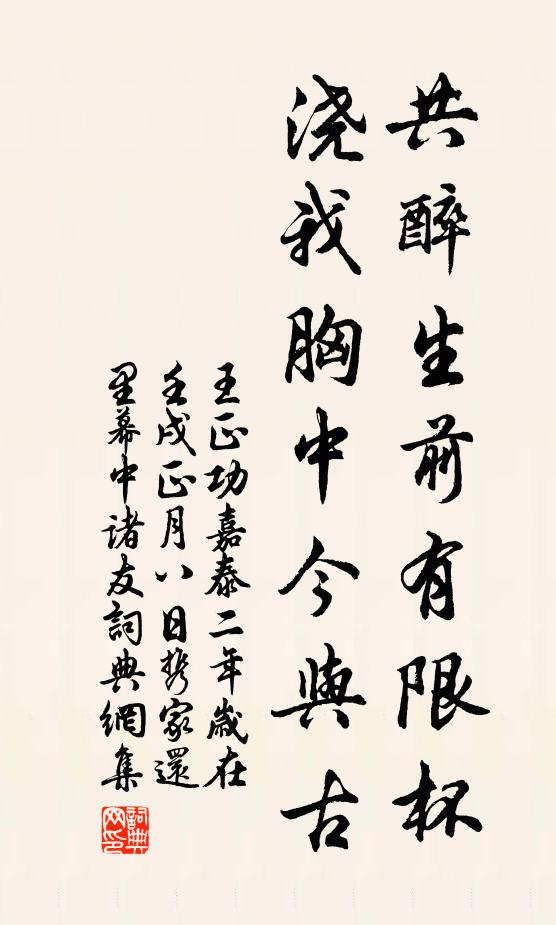 共醉生前有限杯
浇我胸中今與古
王正功嘉泰二年歲在
壬戌正月八日携家還
里幕中諸友詞典網集
詞典
网印